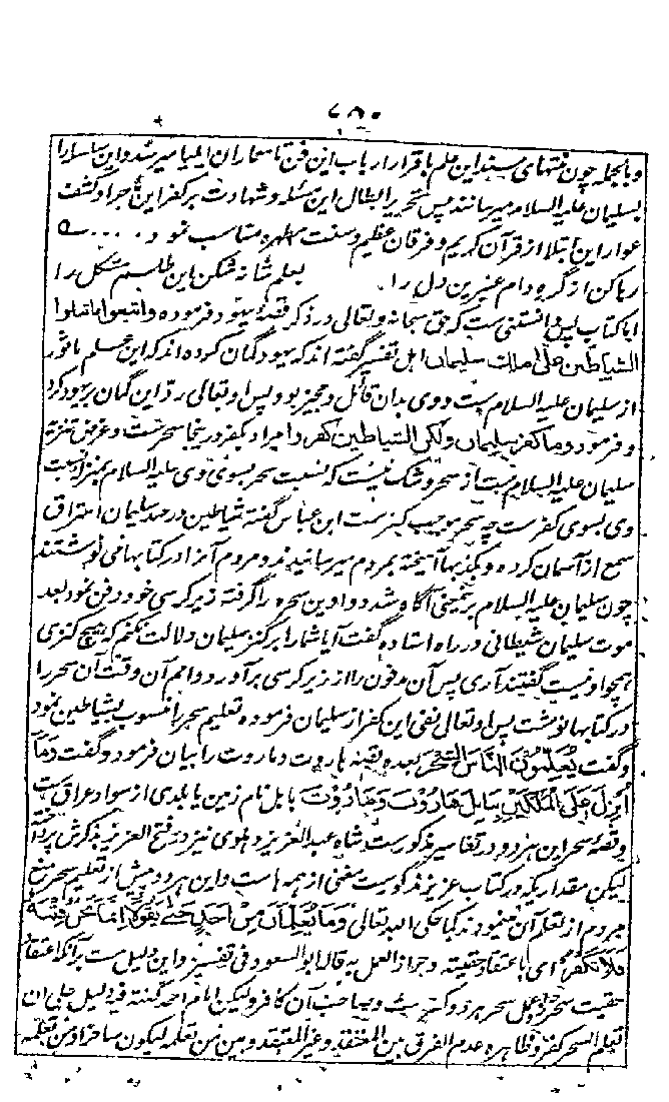 ۷۸۰
وبالجمله چون منتهای سند این علم باقرار ارباب این فن تا سحاران ایلیا میرسد و این سلسله را
بسلیمان علیه السلام میرسانند پس تحریر ابطال این مسئله و شهادت بر کفر این اجرا و کشف
عوار این ابتلا از قرآن کریم و فرقان عظیم و سنت مطهره مناسب نمود ....
رها کن از گره دام عنبرین دل را بعلم شانه شکن این طلسم مشکل را
اما کتاب پس دانستنی ست که حق سبحانه وتعالی در ذکر قصهٔ یهود فرموده واتبعوا ما تتلوا
الشیاطین علی ملک سلیمان اهل تفسیر گفته اند که یهود گمان کرده اند که این علم ماثور
از سلیمان علیه السلام ست و وی بدان قائل و مجیز بود پس او تعالی رد این گمان بر یهود کرد
و فرمود وما کفر سلیمان ولکن الشیاطین کفروا مراد بکفر درینجا سحرست و غرض تنزیه
سلیمان علیه السلام ست از سحر و شک نیست که نسبت سحر بسوی وی علیه السلام بمنزله نسبت
وی بسوی کفرست چه سحر موجب کفرست ابن عباس گفته شیاطین در عهد سلیمان استراق
سمع از آسمان کرده و بکذبها آمیخته بمردم میرسانیدند و مردم آنرا در کتابها می نوشتند
چون سلیمان علیه السلام برینمعنی آگاه شد دواوین سحره را گرفته زیر کرسی خود دفن نمود بعد
موت سلیمان شیطانی در راه استاده گفت آیا شما را بر کنز سلیمان دلالت نکنم که هیچ کنزی
همچو او نیست گفتند آری پس آن مدفون را از زیر کرسی برآورد و امم آن وقت آن سحر را
در کتابها نوشت پس او تعالی نفی این کفر از سلیمان فرموده تعلیم سحر را منسوب بشیاطین نمود
و گفت یُعَلِّمُونَ النَّاسَ السِّحْرَ بعده قصهٔ هاروت و ماروت را بیان فرمود و گفت وَمَا
أُنْزِلَ عَلَى الْمَلَكَيْنِ بِبَابِلَ هَارُوْتَ وَمَارُوْتَ بابل نام زمین یا بلدی از سواد عراق ست
و قصهٔ سحر این هر دو در تفاسیر مذکورست شاه عبد العزیز دهلوی نیز در فتح العزیز بذکرش پرداخته
لیکن مقداریکه در کتاب عزیز مذکورست مغنی از همه است و این هر دو پیش از تعلیم سحر منع
مردم از تعلم آن می نمودند کما حکی الله تعالی وَمَا يُعَلِّمَانِ مِنْ أَحَدٍ حَتَّى يَقُوْلَا إِنَّمَا نَحْنُ فِتْنَةٌ
فَلَا تَكْفُرْ ای باعتقاد حقیته وجواز العمل به قاله ابو السعود فی تفسیره و این دلیل ست برآنکه اعتقاد
حقیت سحر و جواز عمل سحر هر دو کفرست و صاحب آن کافر ولیکن امام احمد گفته فیه دلیل علی ان
تعلم السحر کفر و ظاهره عدم الفرق بین المعتقد وغیر المعتقد وبین من تعلمه لیکون ساحرا ومن تعلمه